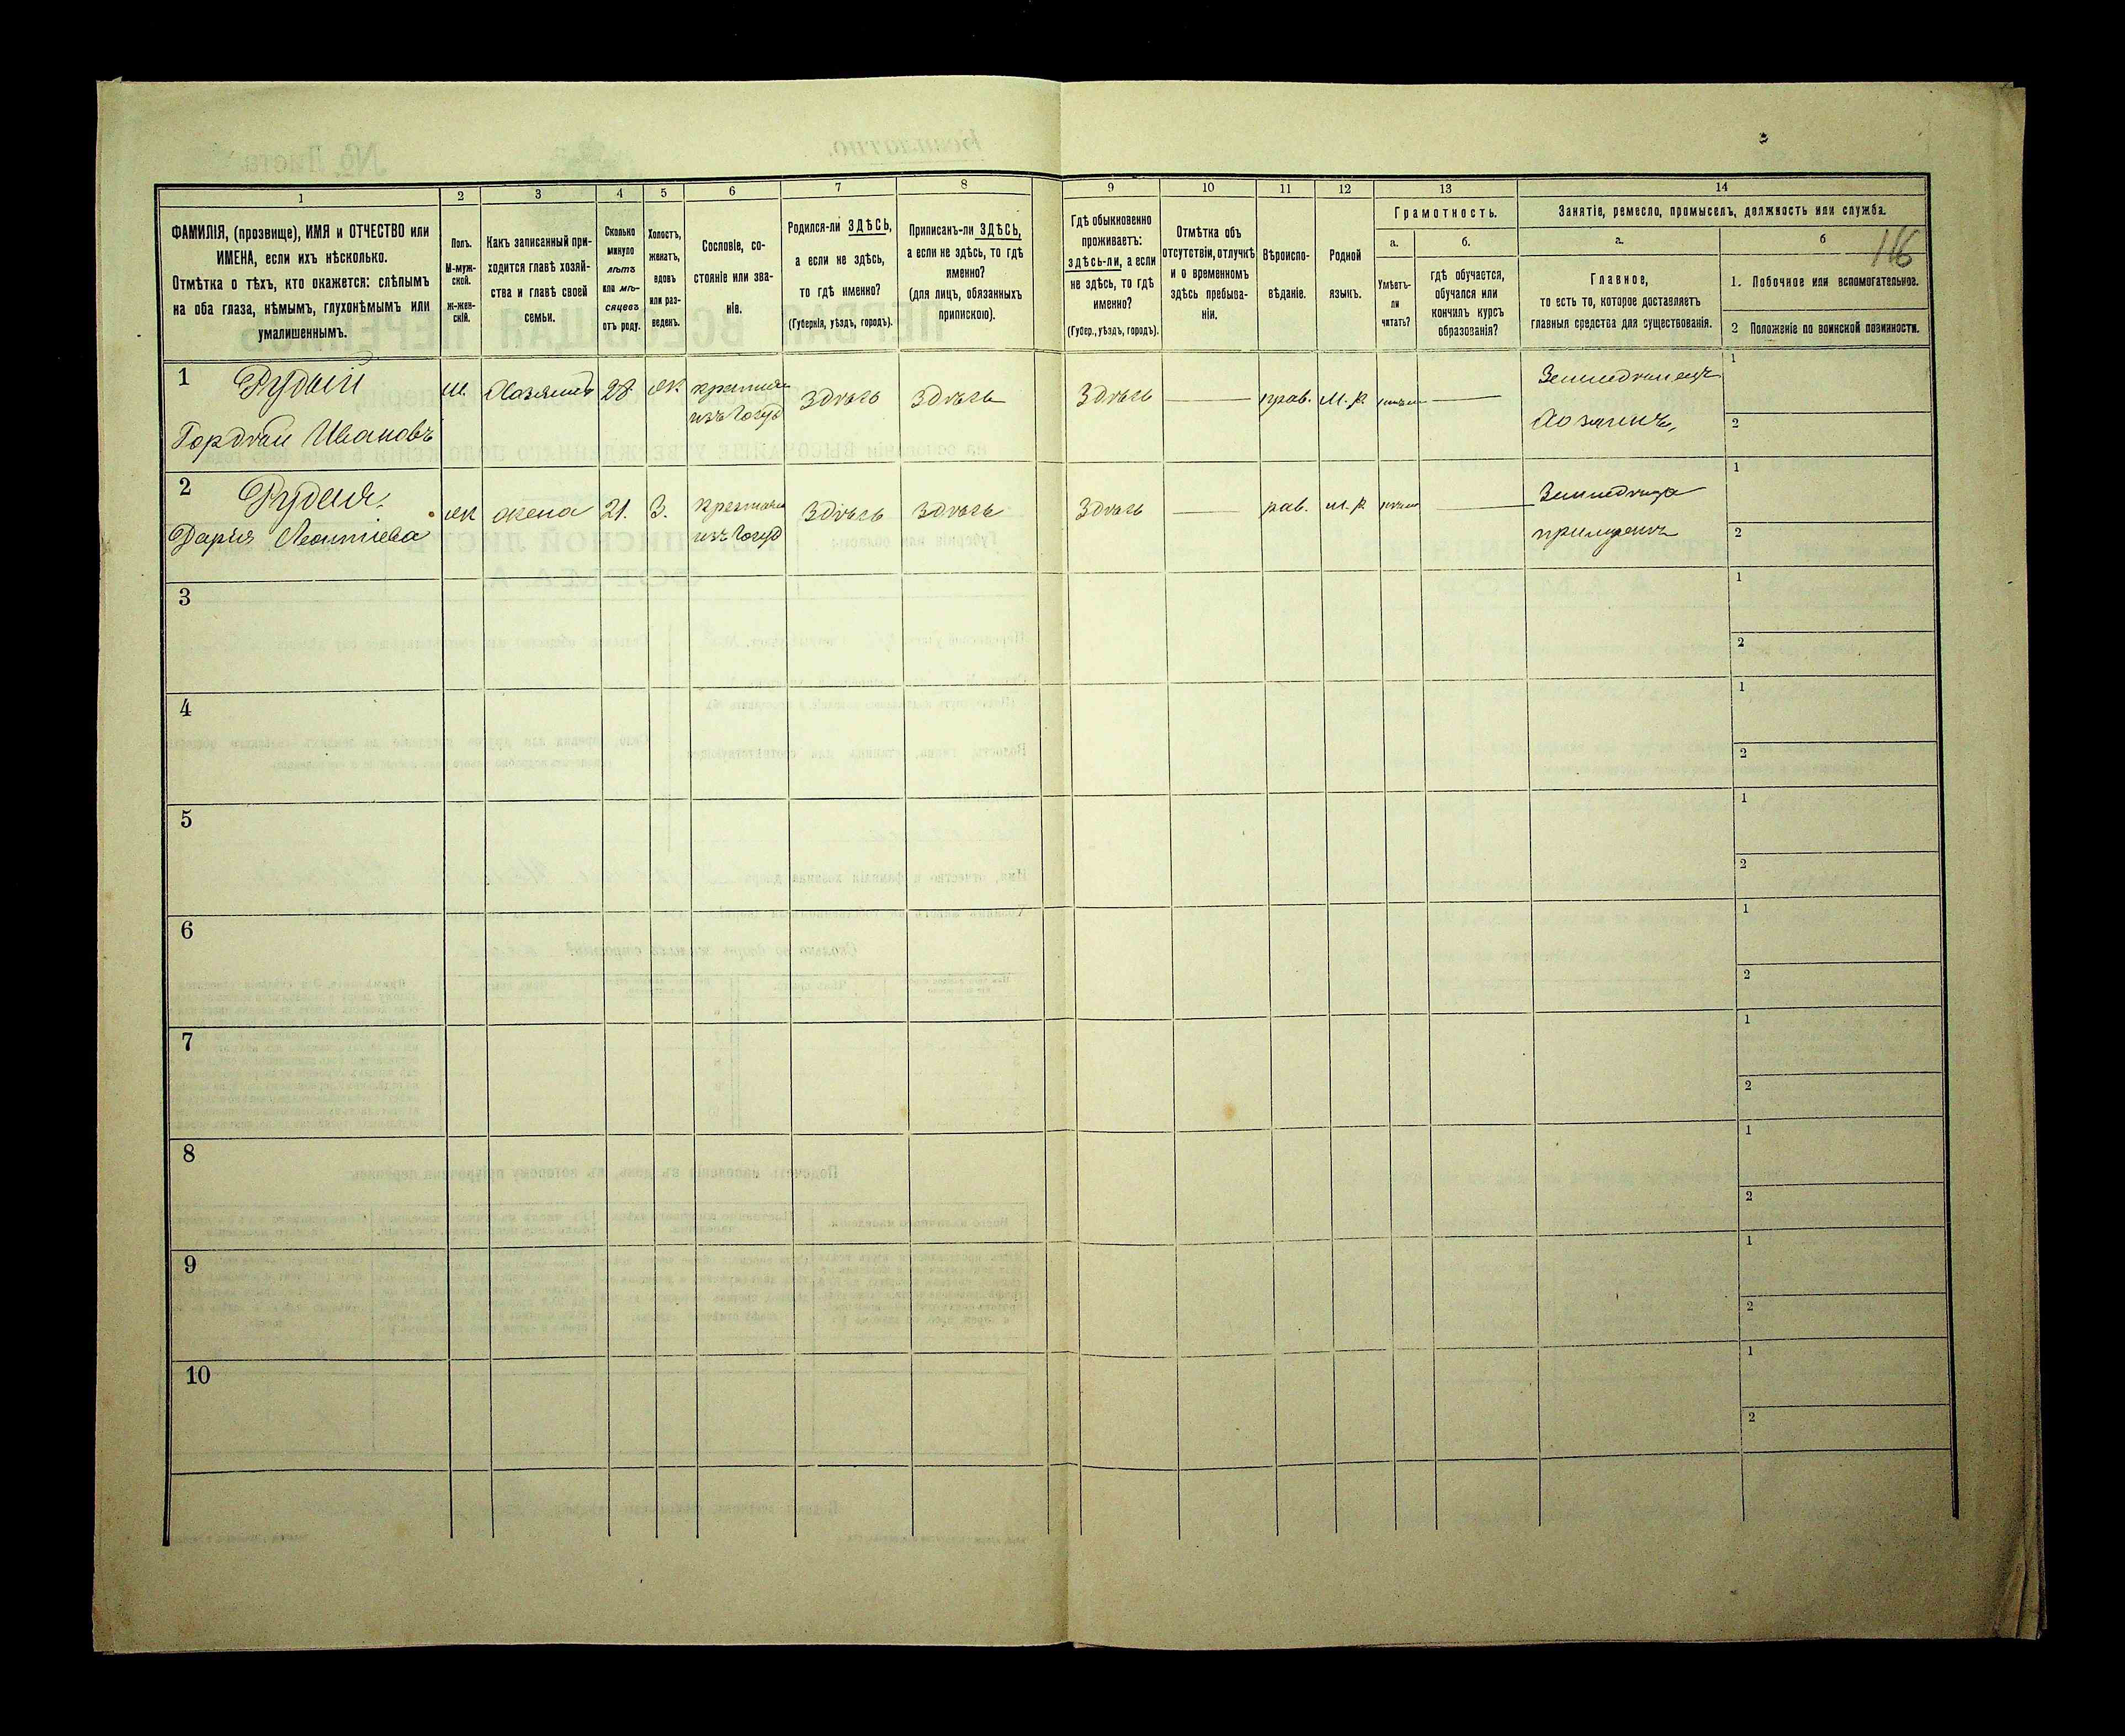 116
1 2 3 4 5 6 7 8 9 10 11 12 13 14
ФАМИЛІЯ, (прозвище), ИМЯ и ОТЧЕСТВО или
ИМЕНА, если ихъ нѣсколько.
Отмѣтка о тѣхъ, кто окажется: слѣпымъ
на оба глаза, нѣмымъ, глухонѣмымъ или
умалишеннымъ.
Полъ.
М-муж-
ской.
ж-жен-
скій.
Какъ записанный при-
ходится главѣ хозяй-
ства и главѣ своей
семьи.
Сколько
минуло
лѣтъ
или мѣ-
сяцевъ
отъ роду.
Холостъ,
женатъ,
вдовъ
или раз-
веденъ.
Сословіе, со-
стояніе или зва-
ніе.
Родился-ли ЗДѢСЬ,
а если не здѣсь,
то гдѣ именно?
(Губернія, уѣздъ, городъ).
Приписанъ-ли ЗДѢСЬ,
а если не здѣсь, то гдѣ
именно?
(для лицъ, обязанныхъ
припискою).
Гдѣ обыкновенно
проживаетъ:
здѣсь-ли, а если
не здѣсь, то гдѣ
именно?
(Губер., уѣздъ, городъ).
Отмѣтка объ
отсутствіи, отлучкѣ
и о временномъ
здѣсь пребыва-
ніи.
Вѣроиспо-
вѣданіе.
Родной
языкъ.
Грамотность.
а.
Умѣетъ-
ли
читать?
б.
гдѣ обучается,
обучался или
кончилъ курсъ
образованія?
Занятіе, ремесло, промыселъ, должность или служба.
а.
Главное,
то есть то, которое доставляетъ
главныя средства для существованія.
б
1. Побочное или вспомогательное.
2 Положеніе по воинской повинности.
1 Рудый
Гордѣй Ивановъ
м. Хозяинъ 28 ж.
изъ госуд
Здѣсь Здѣсь Здѣсь — прав. М. р. —
Хозяинъ,
1
2
2 Рудая
Дарія Леонтіева
ж жена 21. З.
изъ госуд
Здѣсь здѣсь Здѣсь — рав. м. р —
1
2
3
1
2
4
1
2
5
1
2
6
1
2
7
1
2
8
1
2
9
1
2
10
1
2